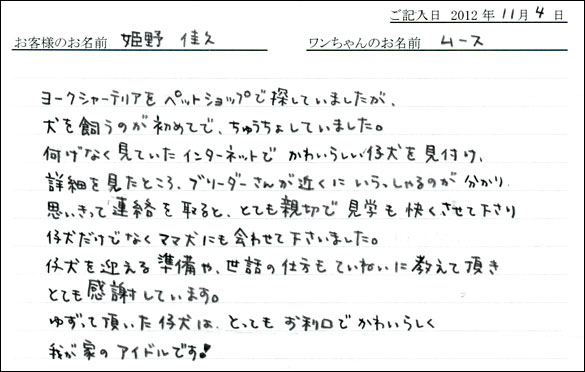 ご記入日 2012 年 11月 4 日
お客様のお名前 姫野 佳久 ワンちゃんのお名前 ムース
ヨークシャーテリアを ペットショップで 探していましたが、
犬を飼うのが初めてで、ちゅうちょしていました。
何げなく見ていたインターネットで かわいらしい仔犬を見付け、
詳細を見たところ、ブリーダーさんが近くに いらっしゃるのが 分かり
思いきって連絡を取ると、とても親切で 見学も 快くさせて下さり
仔犬だけでなくママ犬にも会わせて下さいました。
仔犬を迎える準備や、世話の仕方もていねいに教えて頂き
とても感謝しています。
ゆずって頂いた仔犬は、とっても お利口でかわいらしく
我が家のアイドルです!